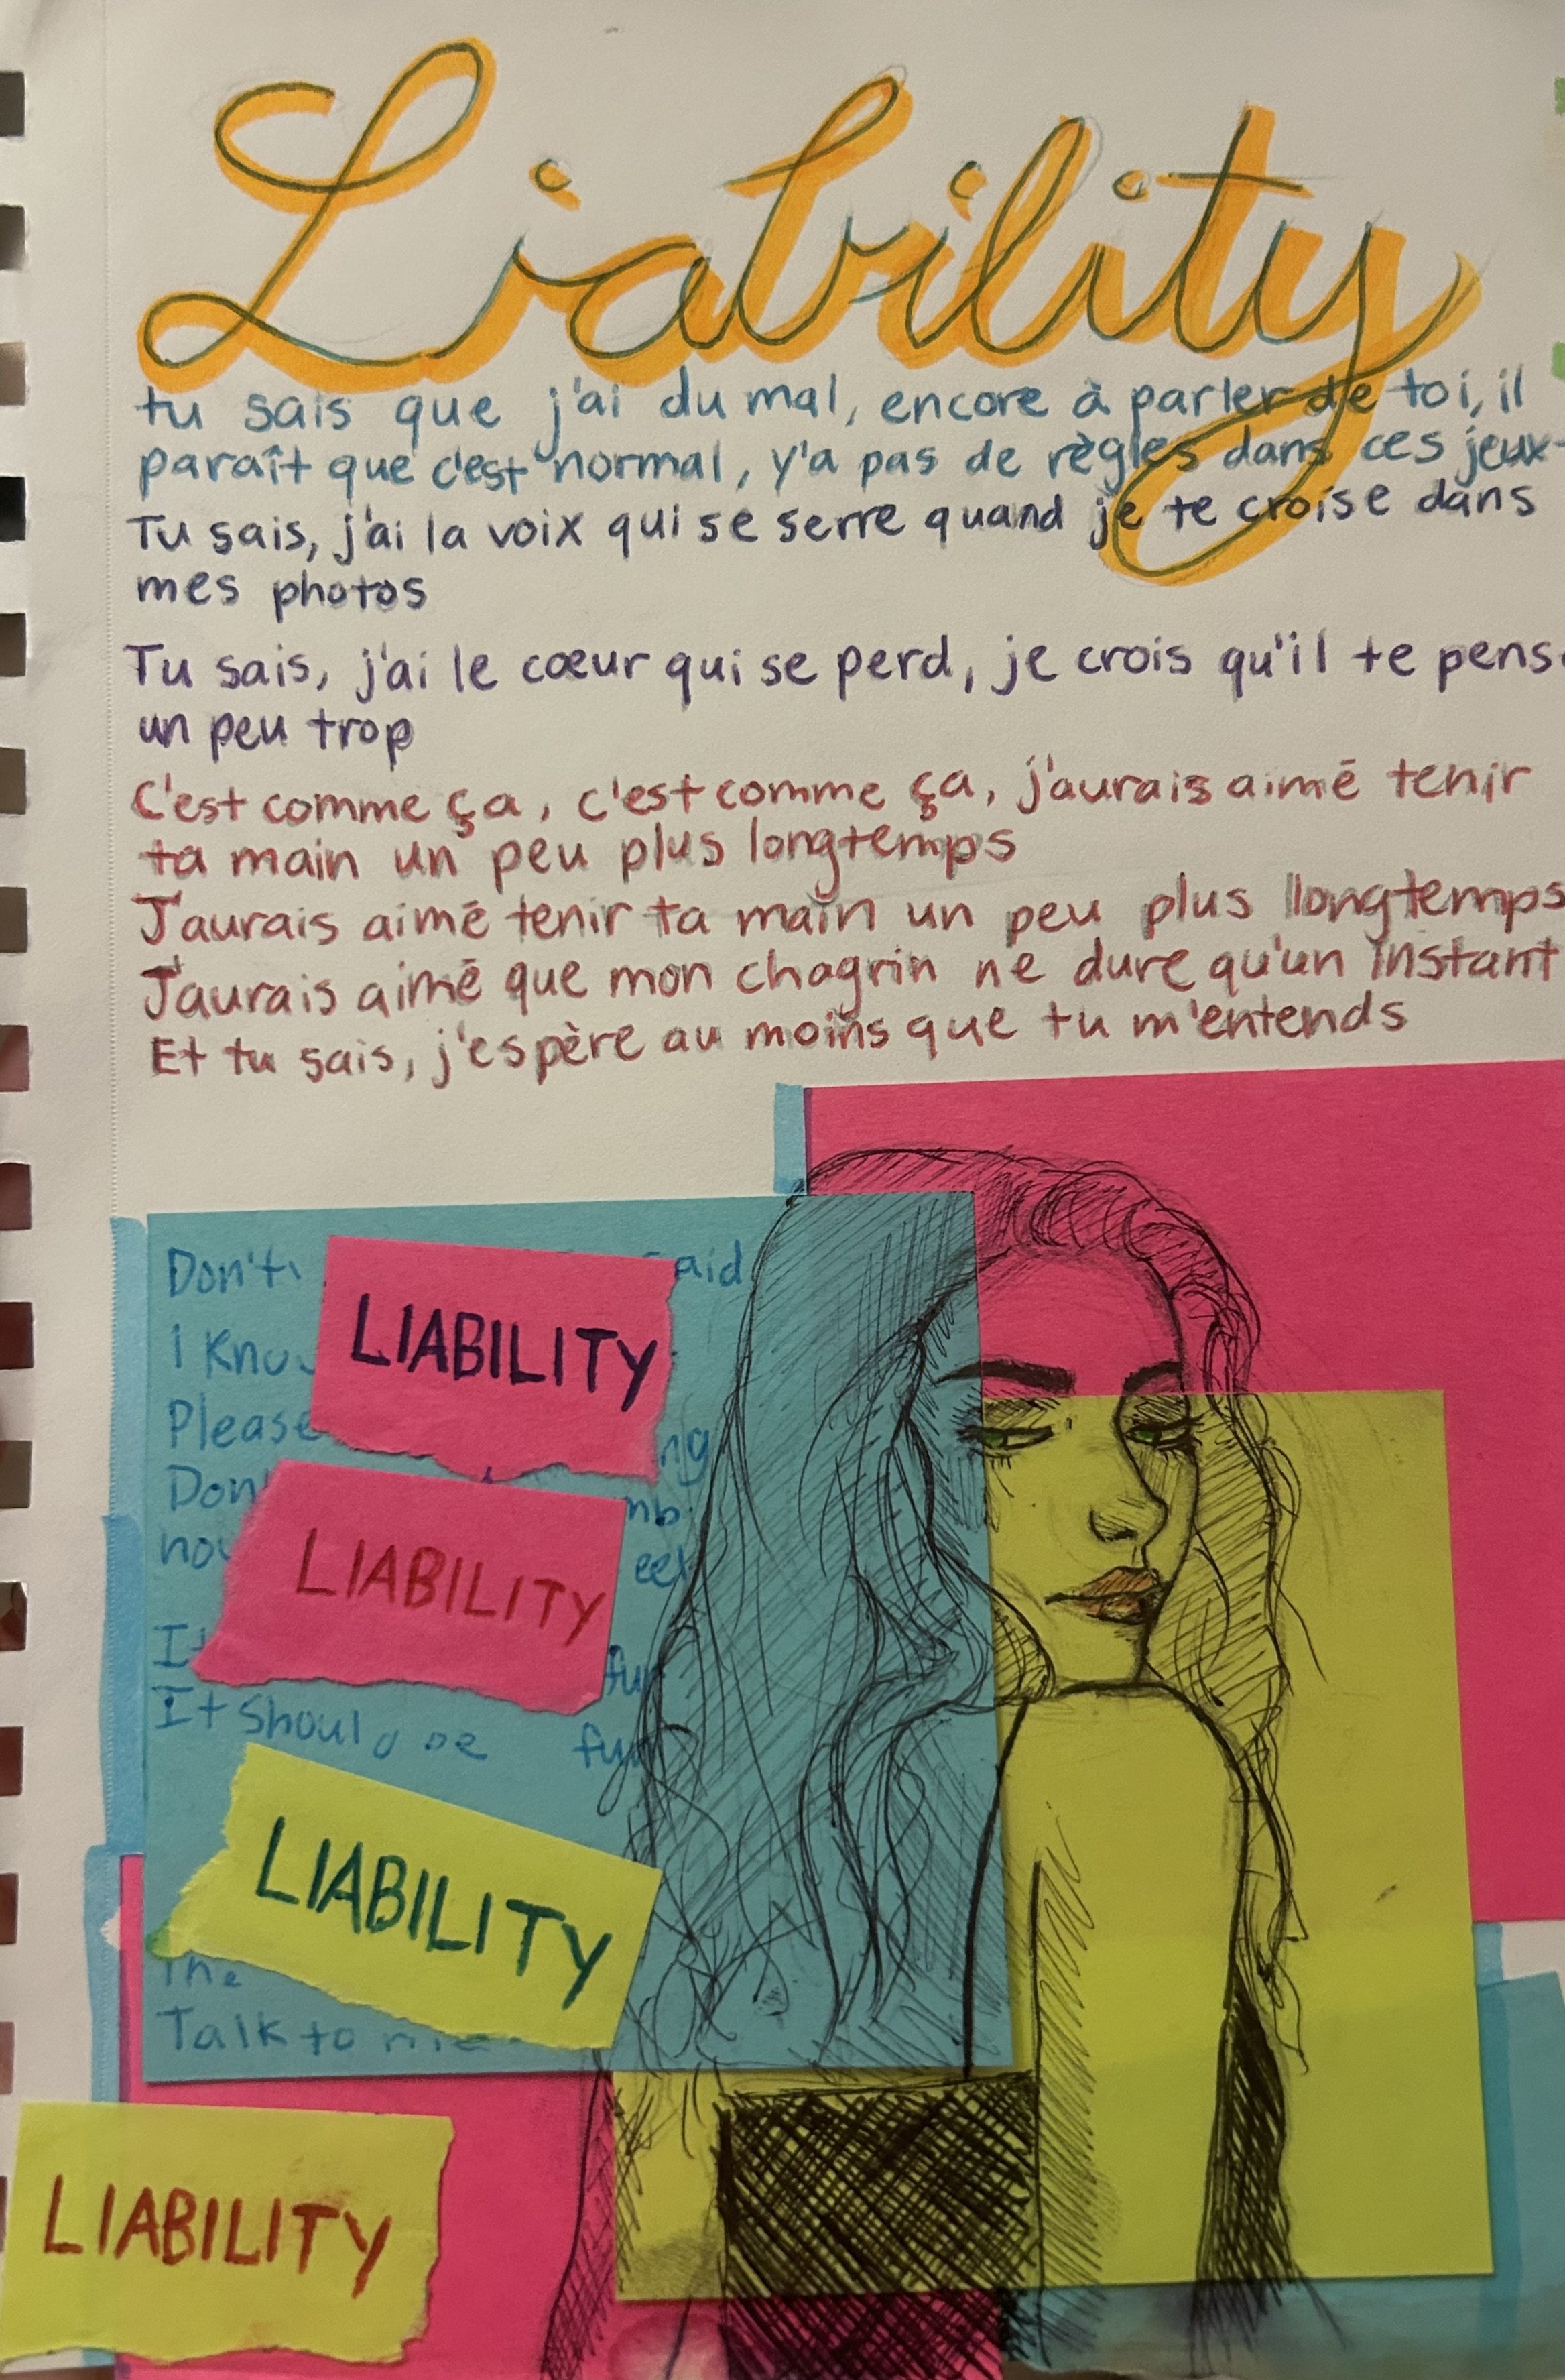 Liability
tu sais que j'ai du mal, encore à parler de toi, il
paraît que c'est normal, y'a pas de règles dans ces jeux
Tu sais, j'ai la voix qui se serre quand je te croise dans
mes photos
Tu sais, j'ai le cœur qui se perd, je crois qu'il te pens
un peu trop
C'est comme ça, c'est comme ça, j'aurais aimé tenir
ta main un peu plus longtemps
J'aurais aimé tenir ta main un peu plus longtemps
J'aurais aimé que mon chagrin ne dure qu'un instant
Et tu sais, j'espère au moins que tu m'entends
Don't
LIABILITY
I
Please
LIABILITY
It should be fun
LIABILITY
The
Talk to me
LIABILITY